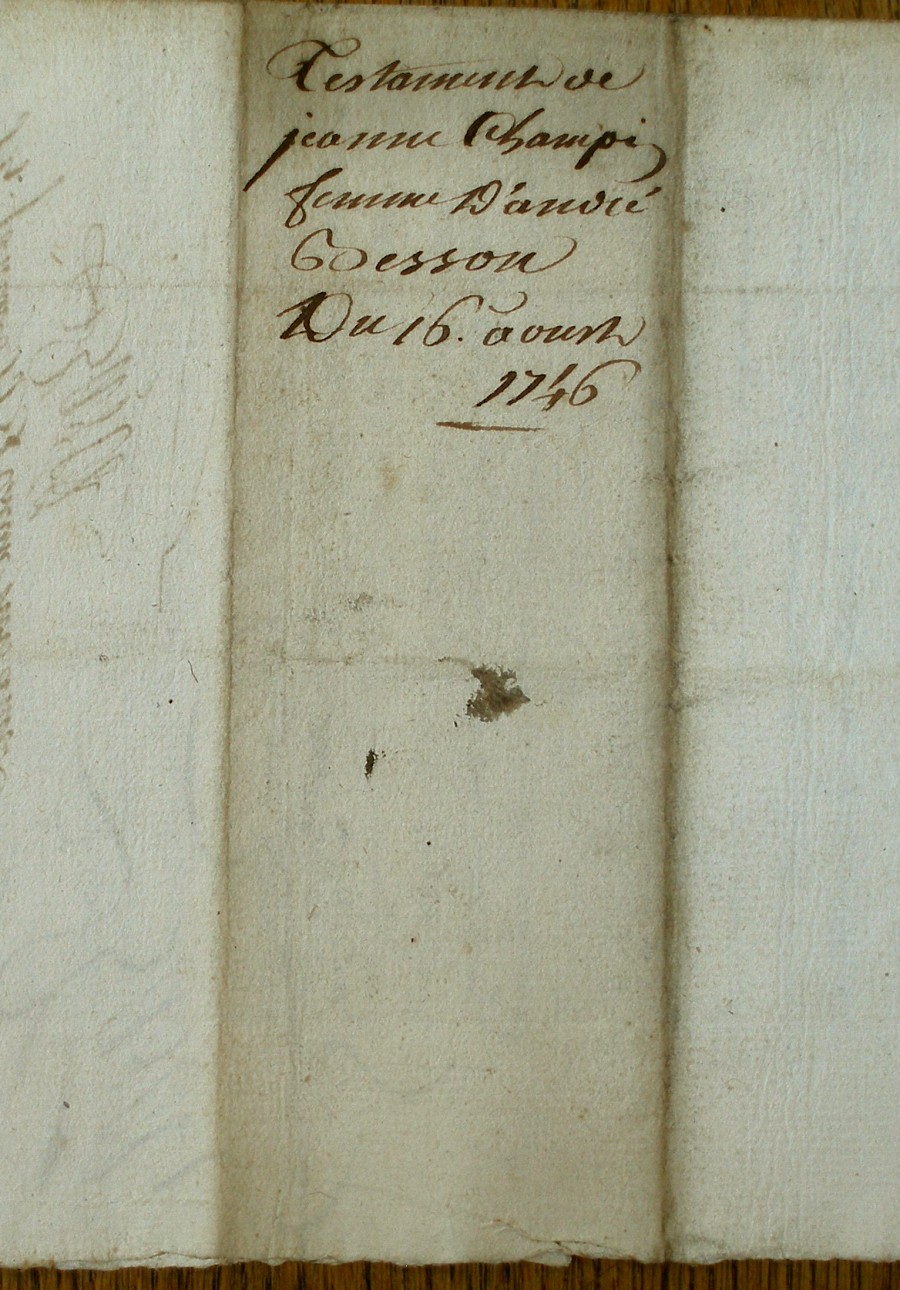 Testament de
jeanne Champi
femme D'andré
Besson
Du 16. aoust
1746